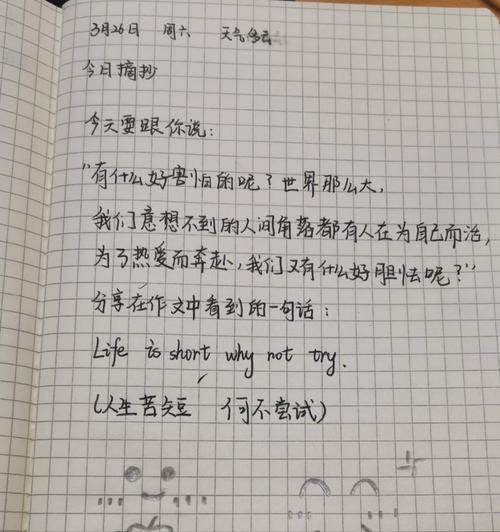 3月26日 周六 天气多云
今日摘抄
今天要跟你说：
“有什么好害怕的呢？世界那么大，
我们意想不到的人间角落都有人在为自己而活，
为了热爱而奔赴，我们又有什么好胆怯呢？”
分享在作文中看到的一句话：
Life is short why not try.
(人生苦短 何不尝试)